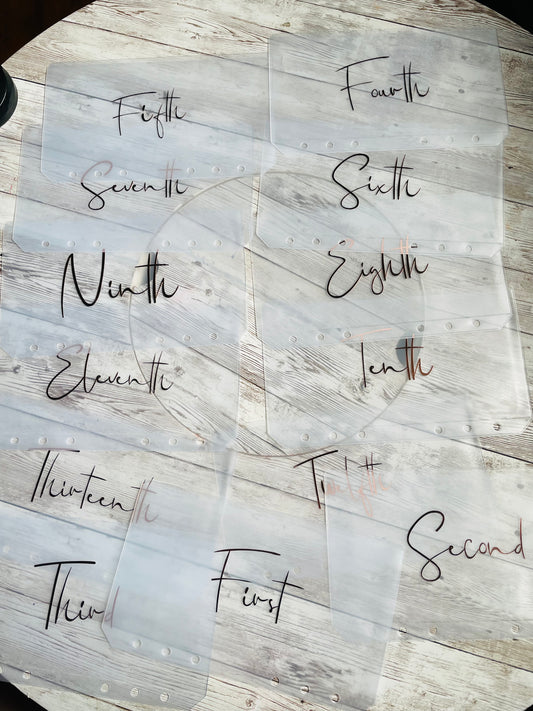 Fifth
Fourth
Seventh
Sixth
Ninth
Eighth
Eleventh
Tenth
Thirteenth
Twelfth
Second
Third
First